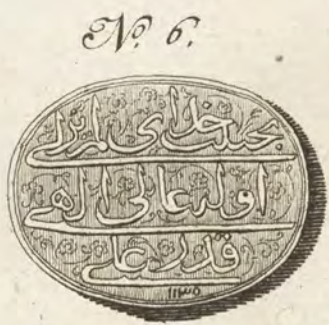 No. 6.
خدای لم یزلی
اوله عالی الهی
قدر علی
۱۱۳۵